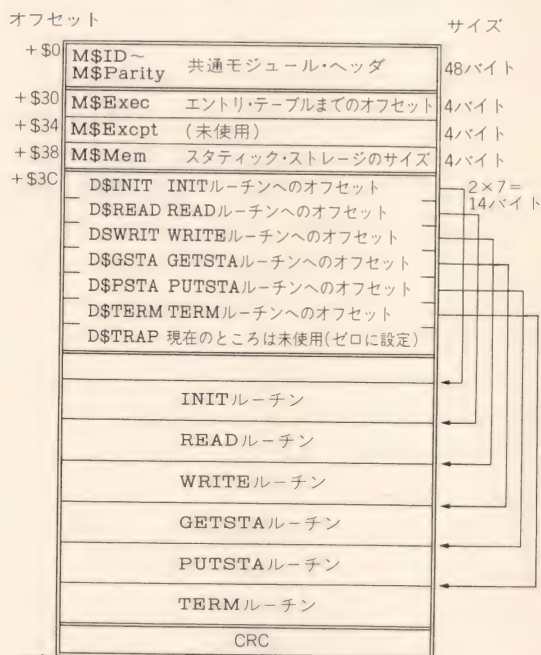 オフセット サイズ
+$0 M$ID～ M$Parity 共通モジュール・ヘッダ 48バイト
+$30 M$Exec エントリ・テーブルまでのオフセット 4バイト
+$34 M$Excpt (未使用) 4バイト
+$38 M$Mem スタティック・ストレージのサイズ 4バイト
+$3C D$INIT INITルーチンへのオフセット 2×7=
D$READ READルーチンへのオフセット 14バイト
DSWRIT WRITEルーチンへのオフセット
D$GSTA GETSTAルーチンへのオフセット
D$PSTA PUTSTAルーチンへのオフセット
D$TERM TERMルーチンへのオフセット
D$TRAP 現在のところは未使用(ゼロに設定)
INITルーチン
READルーチン
WRITEルーチン
GETSTAルーチン
PUTSTAルーチン
TERMルーチン
CRC